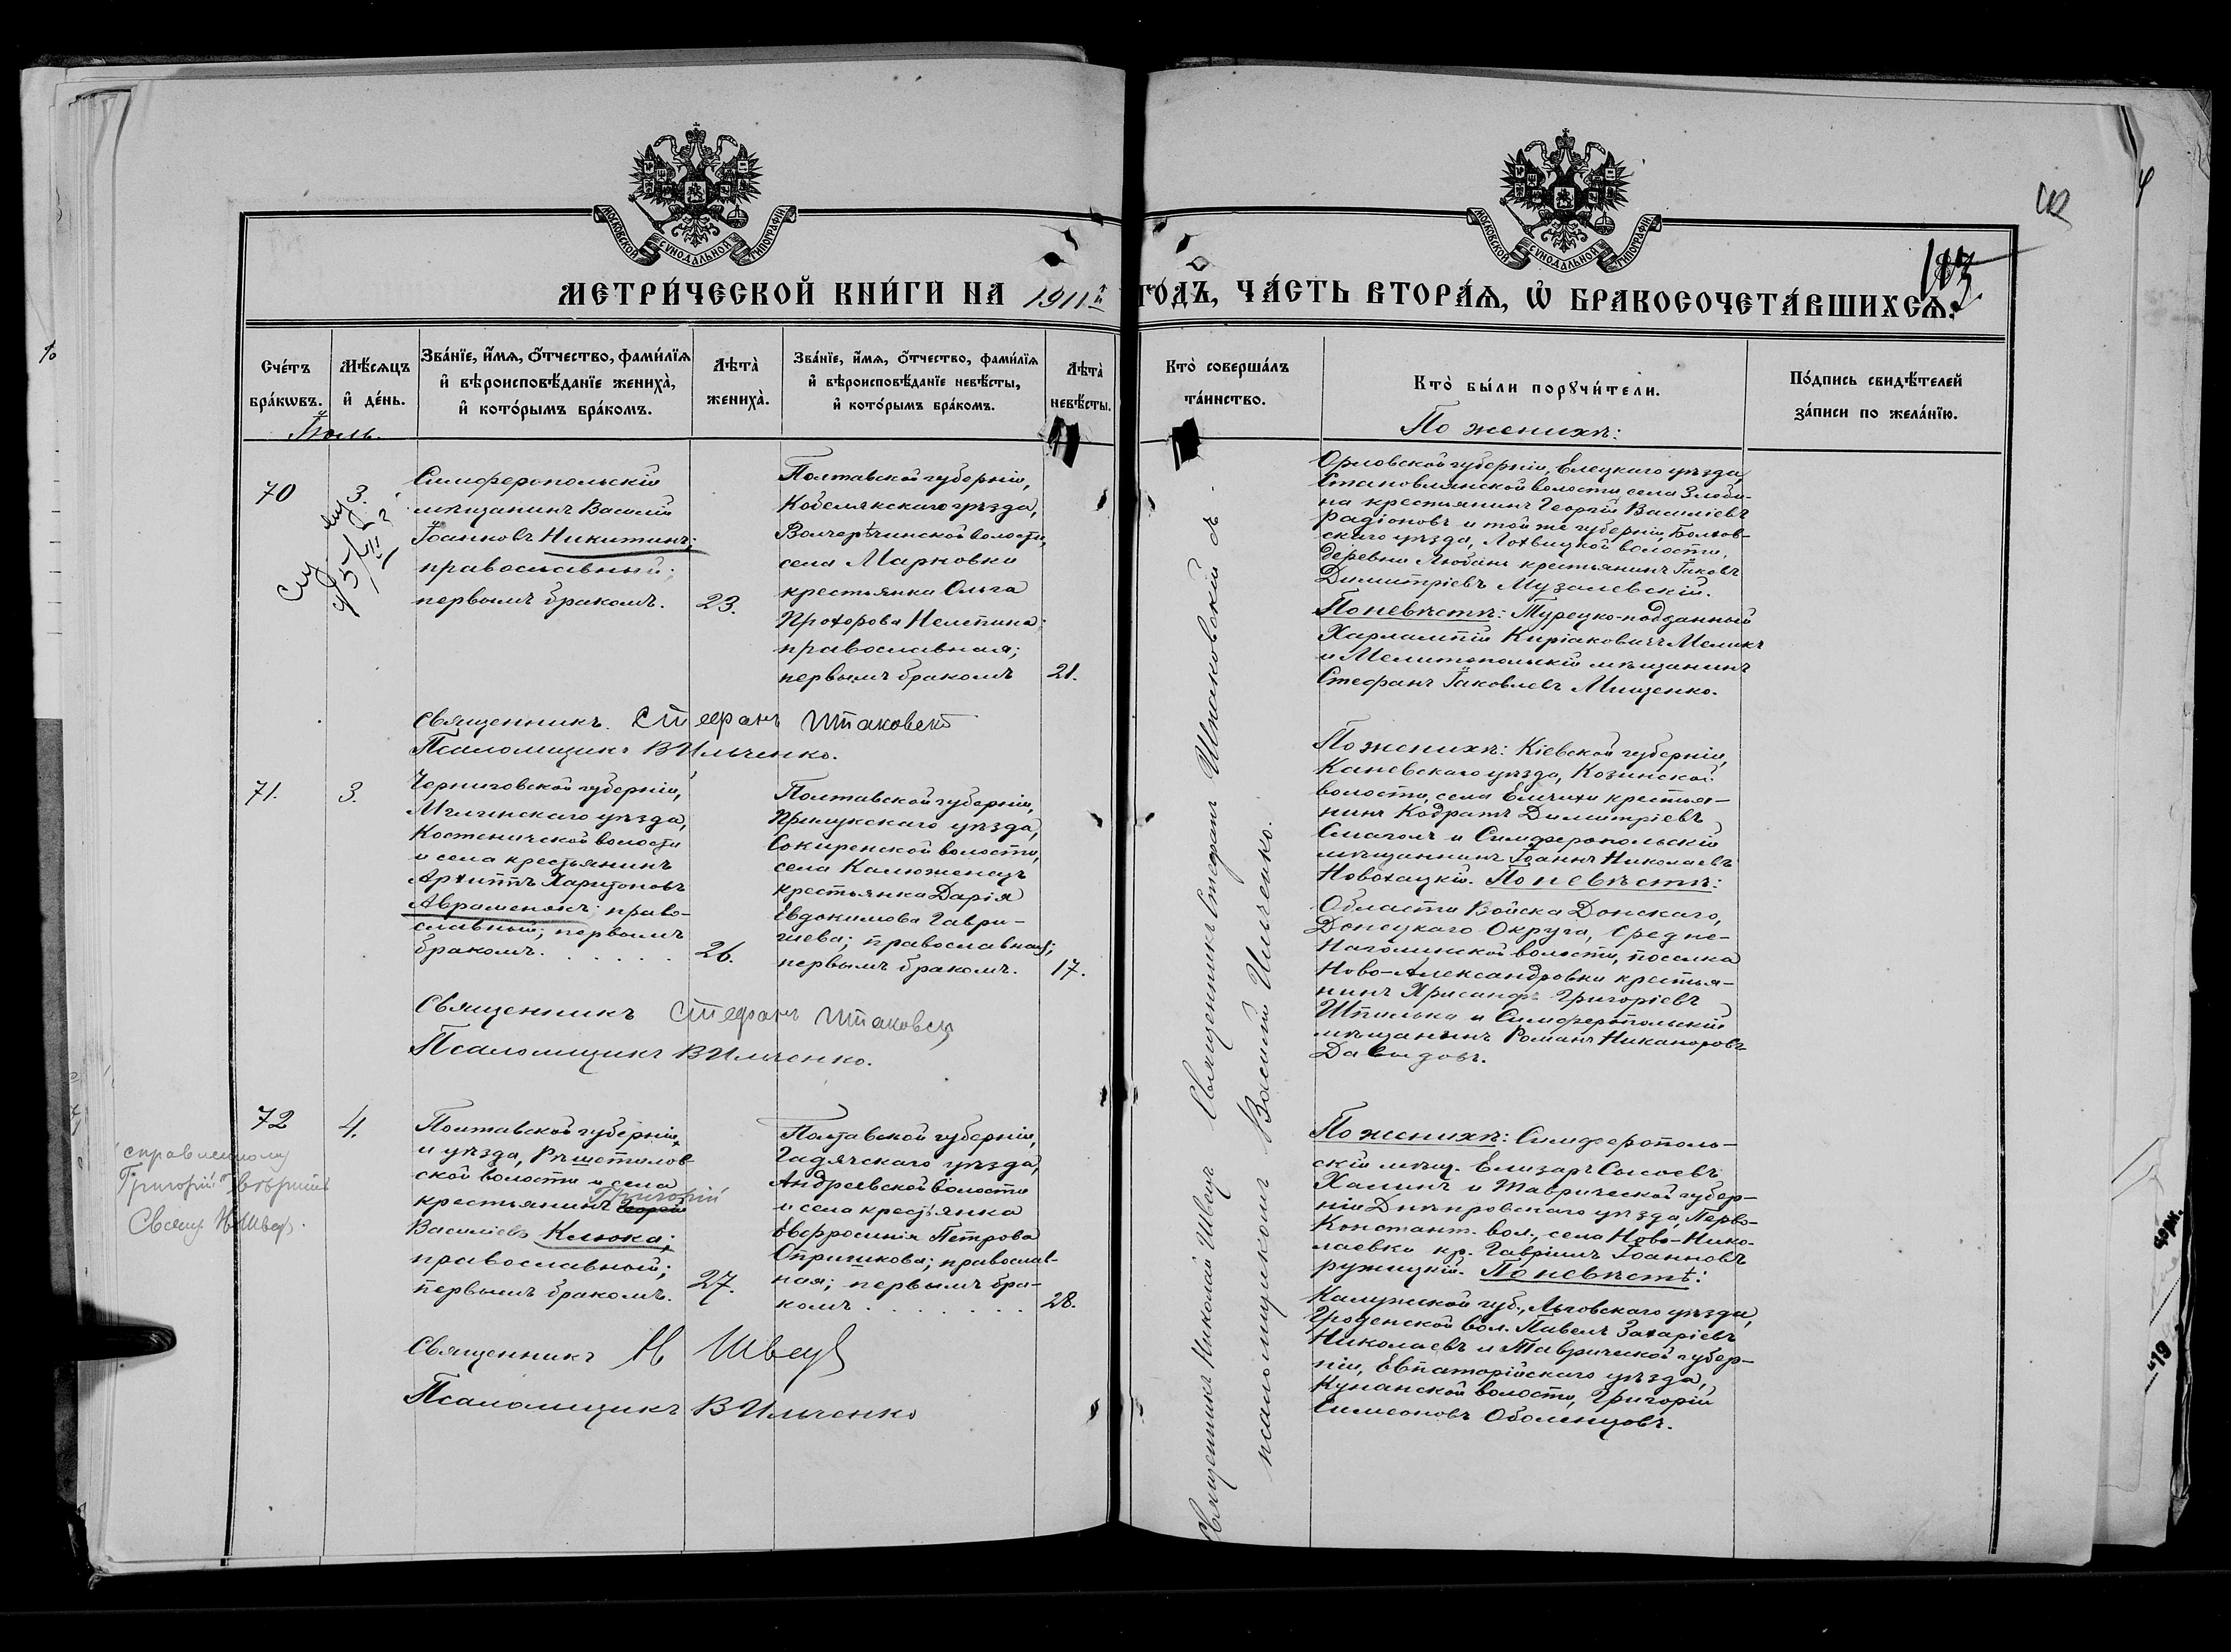 МОСКОВСКОЙ СѴНОДАЛЬНОЙ ТИПОГРАФІИ
МОСКОВСКОЙ СѴНОДАЛЬНОЙ ТИПОГРАФІИ
МЕТРИ́ЧЕСКОЙ КНИ́ГИ НА 1911й ГОДЪ, ЧА́СТЬ ВТОРА́Ѧ, Ѡ҆ БРАКОСОЧЕТА́ВШИХСѦ.
Сче́тъ бра́кѡвъ.
Мѣ́сѧцъ и҆ де́нь.
Зва́нїе, и҆́мѧ, ѻ҆́тчество, фами́лїѧ
и҆ вѣроисповѣ́данїе жениха̀,
и҆ кото́рымъ бра́комъ.
Лѣта̀ жениха̀.
Зва́нїе, и҆́мѧ, ѻ҆́тчество, фами́лїѧ
и҆ вѣроисповѣ́данїе невѣ́сты,
и҆ кото́рымъ бра́комъ.
Лѣта̀ невѣ́сты.
Кто̀ соверша́лъ
та́инство.
Кто̀ бы́ли порꙋчи́тели.
По́дпись свидѣ́телей
за́писи по жела́нїю.
Іюль.
70
3.
Симферопольскій
мѣщанинъ Василій
Іоанновъ Никитинъ;
православный;
первымъ бракомъ.
23.
Полтавской губерніи,
Кобелякскаго уѣзда,
села Марковки
крестьянка Ольга
Прохорова Нелепина;
православная;
первымъ бракомъ
21.
Священникъ Стефанъ Шпаковскій
Псаломщикъ В Ильченко.
По женихѣ:
Орловской губерніи, Елецкаго уѣзда,
Становлянской волости, села Злоби-
на крестьянинъ Георгій Василіевъ
Радіоновъ и той же губерніи, Болхов-
скаго уѣзда, Лохвицкой волости,
деревни Любани крестьянинъ Іаковъ
Димитріевъ Музалевскій.
По невѣстѣ: Турецко-подданный
Харлампій Киріаковичъ Меликъ
и Мелитопольскій мѣщанинъ
Стефанъ Іаковлевъ Мищенко.
71.
3.
Черниговской губерніи,
Мглинскаго уѣзда,
Костеничской волости
и села крестьянинъ
Архиппъ Харитоновъ
Авраменокъ; право-
славный; первымъ
бракомъ.
26.
Полтавской губерніи,
Прилукскаго уѣзда,
Сокиренской волости,
села Калюженецъ
крестьянка Дарія
Евдокимова Гаври-
шева; православная;
первымъ бракомъ.
17.
Священникъ Стефанъ Шпаковскій
Псаломщикъ В Ильченко.
По женихѣ: Кіевской губерніи,
Каневскаго уѣзда, Козинской
волости, села Емчихи крестья-
нинъ Кодратъ Димитріевъ
Смаголь и Симферопольскій
мѣщанинъ Іоаннъ Николаевъ
Новохацкій. По невѣстѣ:
Области Войска Донскаго,
Донецкаго Округа, Средне-
Наголинской волости, поселка
Ново-Александровки крестья-
нинъ Хрисанфъ Григоріевъ
Шпилька и Симферопольскій
мѣщанинъ Романъ Никаноровъ
Давыдовъ.
72
4.
Полтавской губерніи,
и уѣзда, Рѣшетилов-
ской волости и села
Григорій
крестьянинъ Георгій
Василіевъ Клюка;
православный;
первымъ бракомъ.
27.
Полтавской губерніи,
Гадячскаго уѣзда,
Андреевской волости
и села крестьянка
Евфросинія Петрова
Опришкова; православ-
ная; первымъ бра-
комъ
28.
Священникъ Н Швецъ
Псаломщикъ В Ильченко
справленному
Григорій вѣрить
Свящ. Н Швецъ.
По женихѣ: Симферополь-
скій мѣщ. Елизаръ Сысоевъ
Халинъ и Таврической губер-
ніи Днѣпровскаго уѣзда, Перво-
Констант. вол., села Ново-Нико-
лаевки кр. Гавріилъ Іоанновъ
ружицкій. По невѣстѣ:
Калужской губ., Льговскаго уѣзда,
вол. Павелъ Захаріевъ
Николаевъ и Таврической губер-
ніи, Евпаторійскаго уѣзда,
Кунанской волости, Григорій
Симеоновъ Оболенцовъ.
Священникъ Николай Швецъ Священникъ Стефанъ Шпаковскій съ
псаломщикомъ Василій Ильченко.